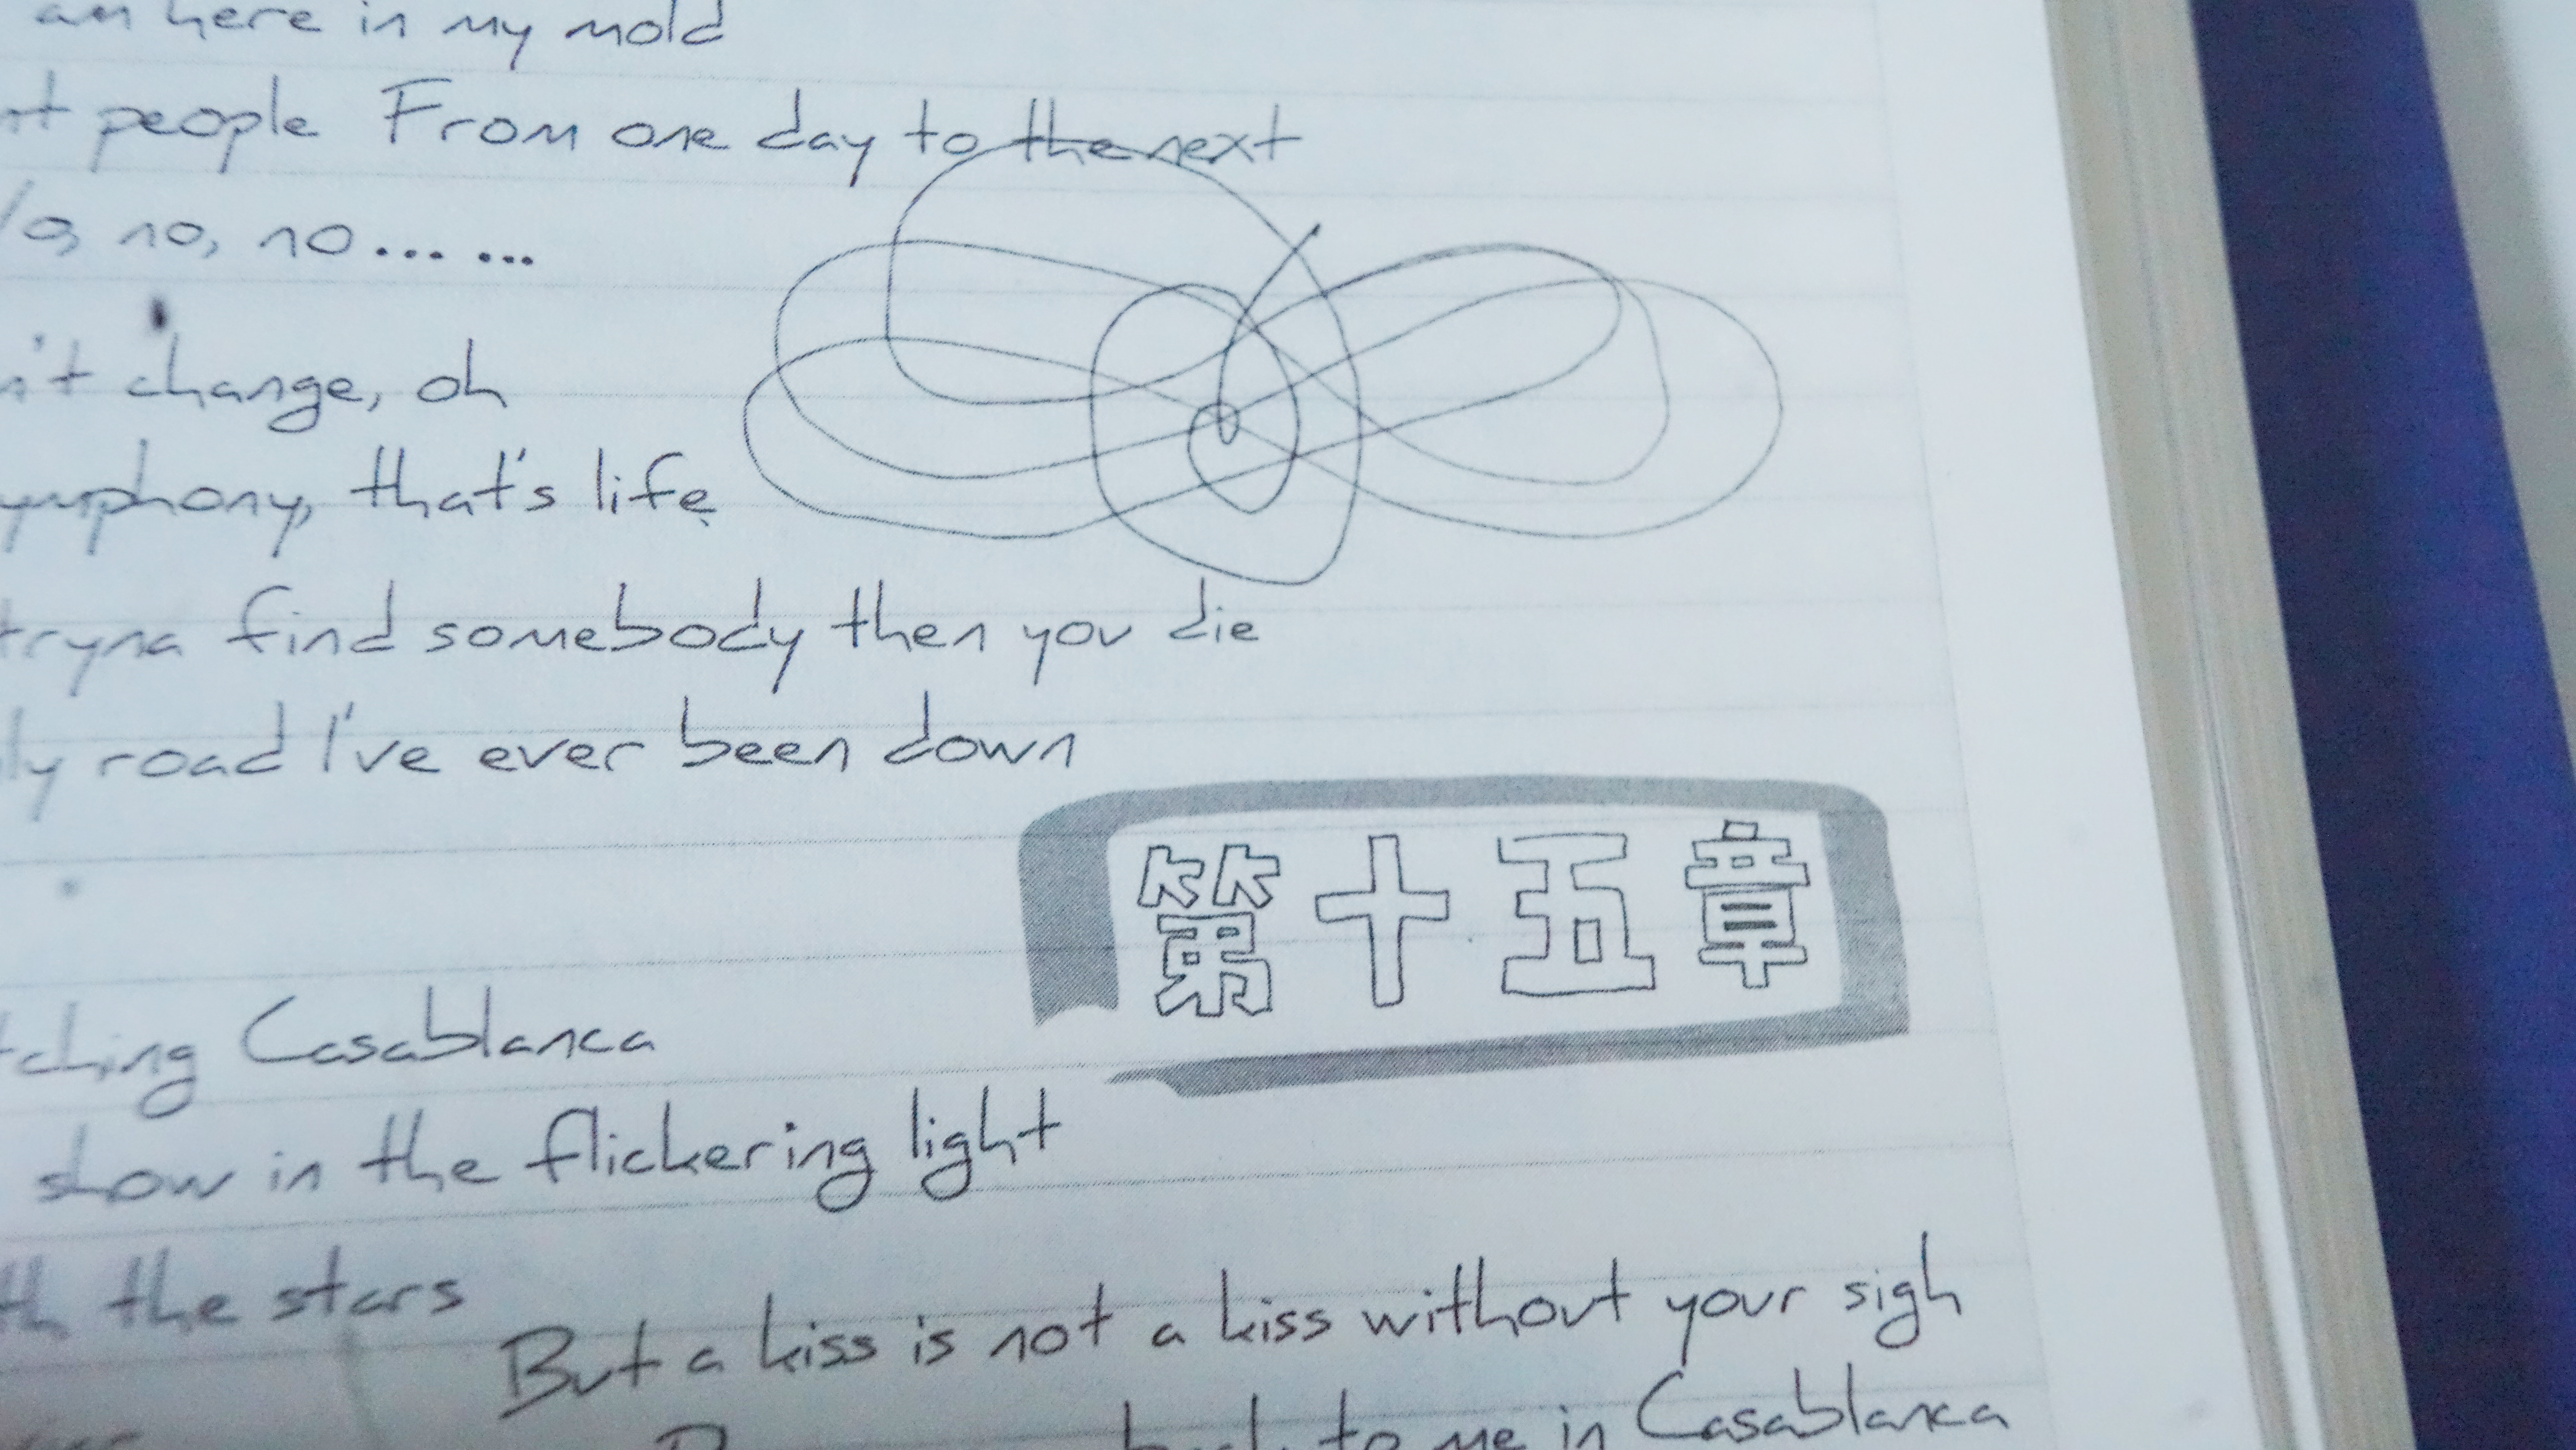 am here in my mold
people From one day to the next
no, no... ...
change, oh
that's life
tryna find somebody then you die
road I've ever been down
第十五章
Casablanca
show in the flickering light
the stars
But a kiss is not a kiss without your sigh
to me in Casablanca